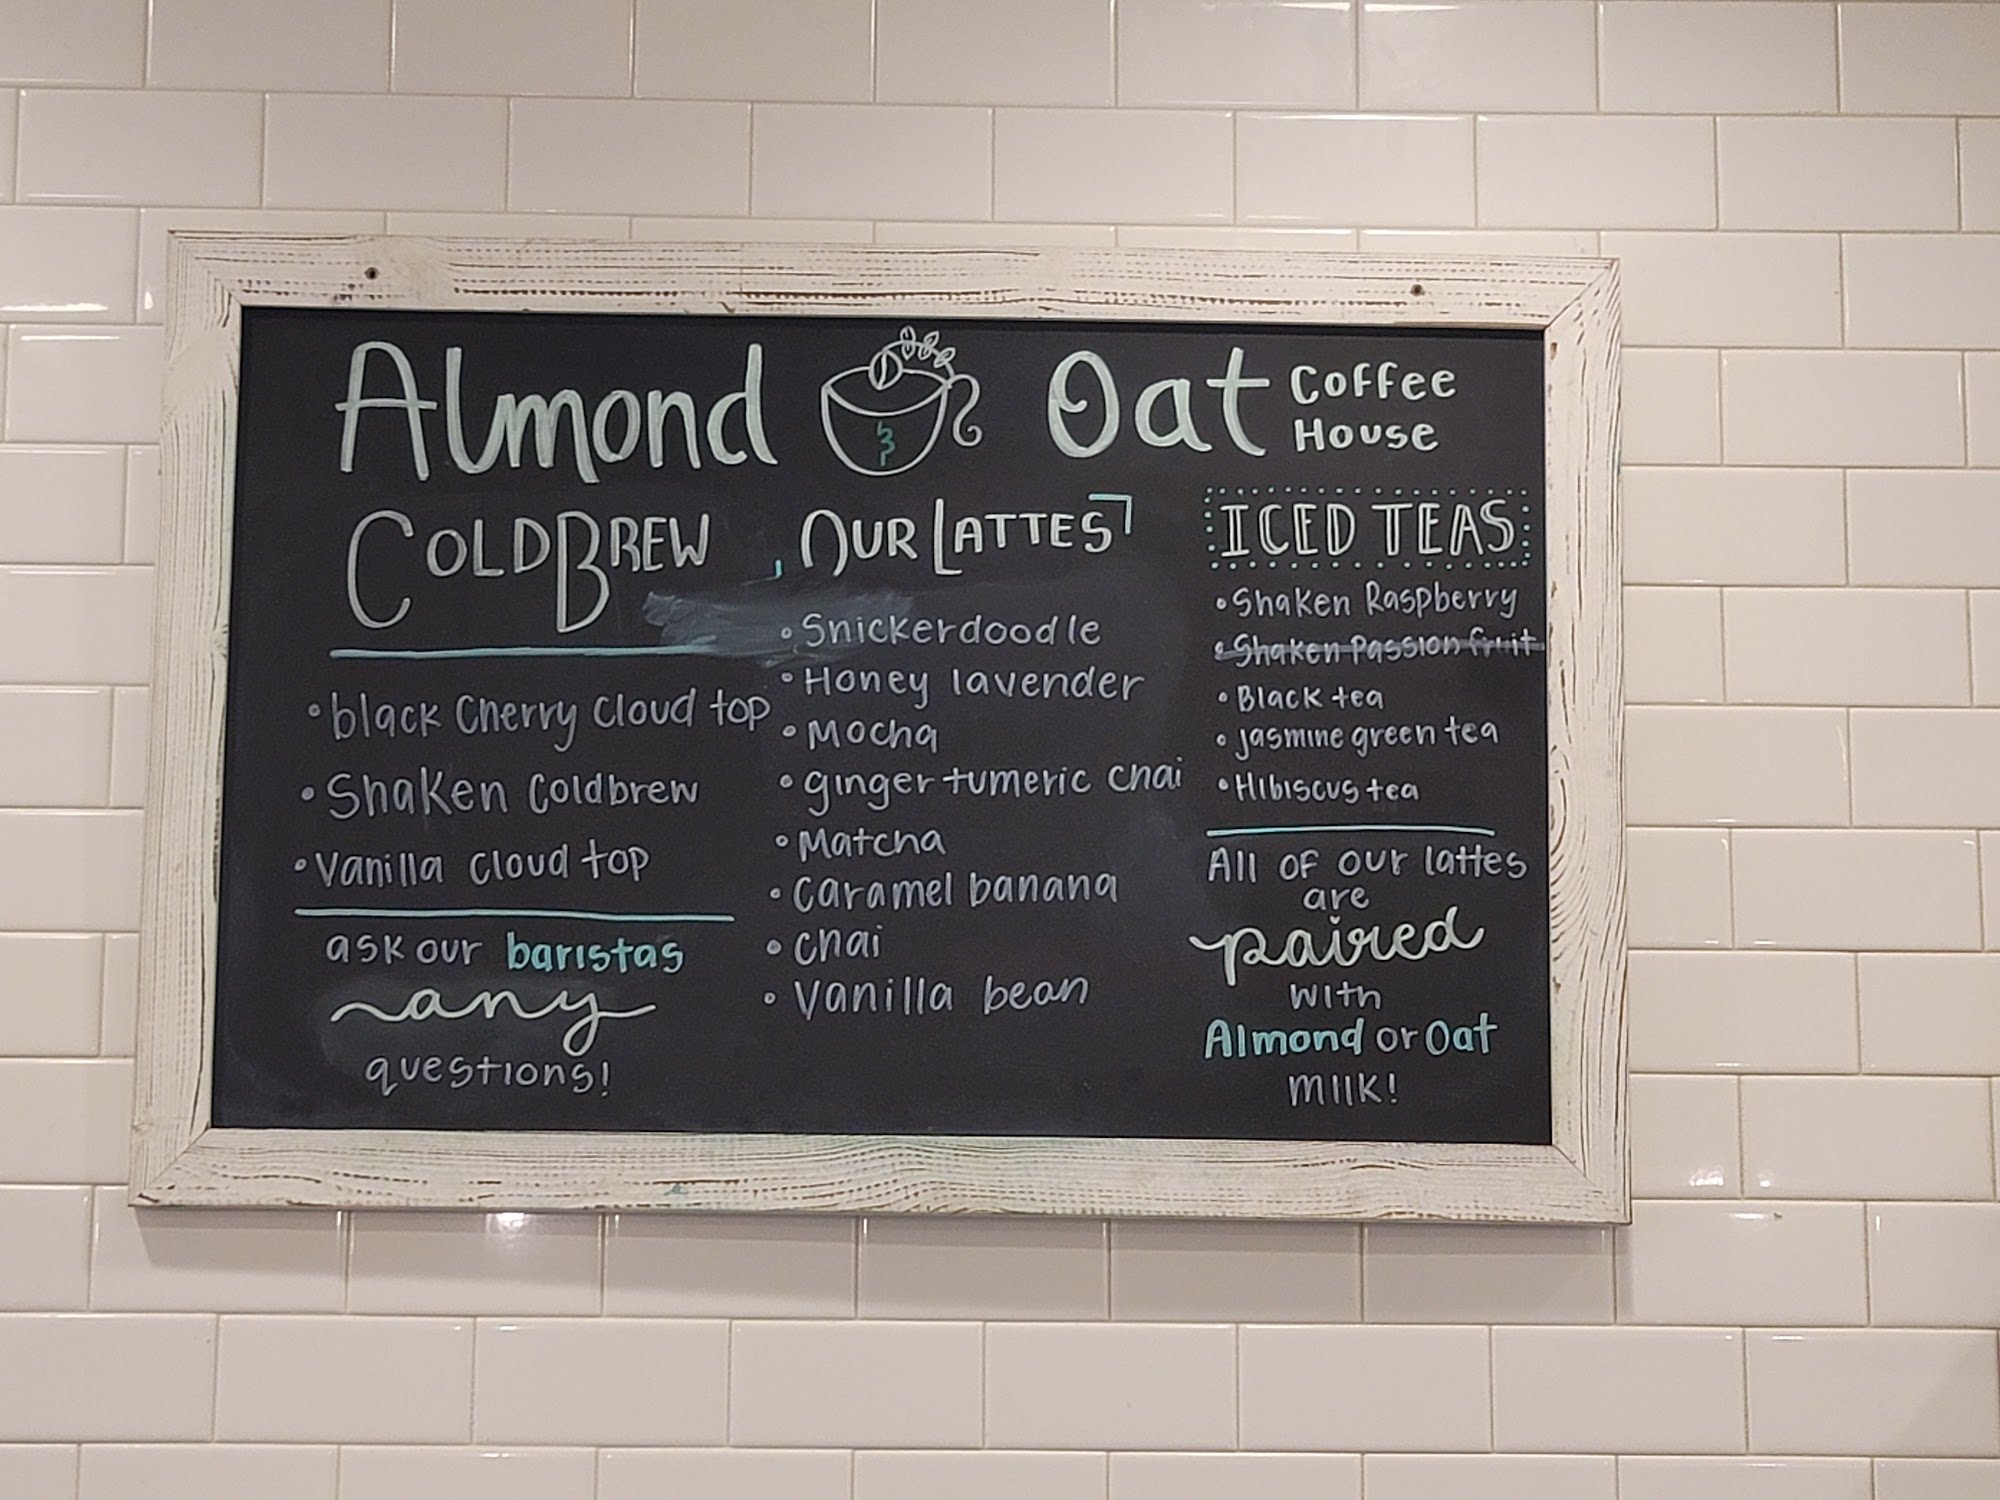 Almond & Oat Coffee House
COLDBREW
• black Cherry Cloud top
• Shaken Coldbrew
• Vanilla Cloud top
ask our baristas
any
questions!
OUR LATTES
• Snickerdoodle
• Honey lavender
• Mocha
• ginger tumeric chai
• Matcha
• Caramel banana
• chai
• Vanilla bean
ICED TEAS
• Shaken Raspberry
• Shaken Passion fruit
• Black tea
• Jasmine green tea
• Hibiscus tea
All of our lattes
are
paired
with
Almond or Oat
milk!